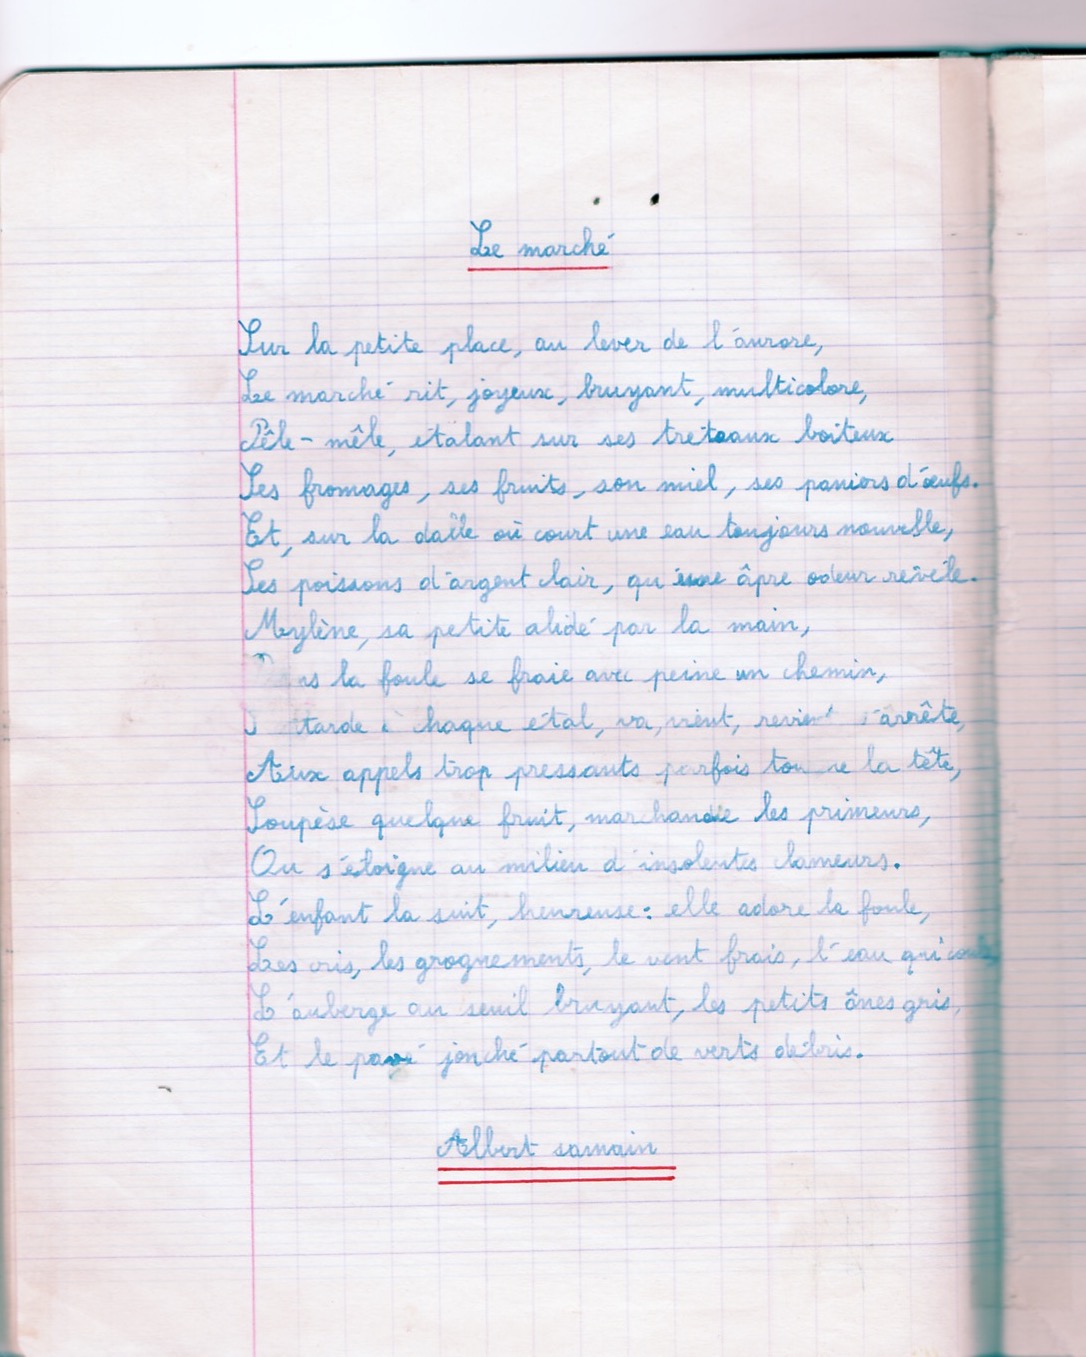 Le marché
Sur la petite place, au lever de l'aurore,
Le marché rit, joyeux, bruyant, multicolore,
Pêle-mêle, étalant sur ses tréteaux boiteux
Ses fromages, ses fruits, son miel, ses paniers d'œufs.
Et, sur la dalle où court une eau toujours nouvelle,
Ses poissons d'argent clair, qu'une âpre odeur révèle.
Mylène, sa petite alidé par la main,
la foule se fraie avec peine un chemin,
étal, va, vient, revient s'arrête,
Aux appels trop pressants parfois tourne la tête,
Soupèse quelque fruit, marchande les primeurs,
Ou s'éloigne au milieu d'insolentes clameurs.
L'enfant la suit, heureuse : elle adore la foule,
Les cris, les grognements, le vent frais, l'eau qui coule,
L'auberge au seuil bruyant, les petits ânes gris,
Et le pavé jonché partout de verts débris.
Albert samain